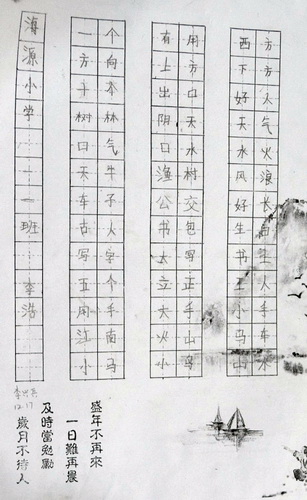 方方人气火浪长生人手车水
西下好天水风好生书工小马山
用方中天水树交包写正手山鸟
有上出阴口渔公书太立大火小
个向本林气牛子火字个手南马
一方千树口天车古写五用江小
海源小学一一班李浩
盛年不再來
一日難再晨
及時當勉勵
歲月不待人
12.17